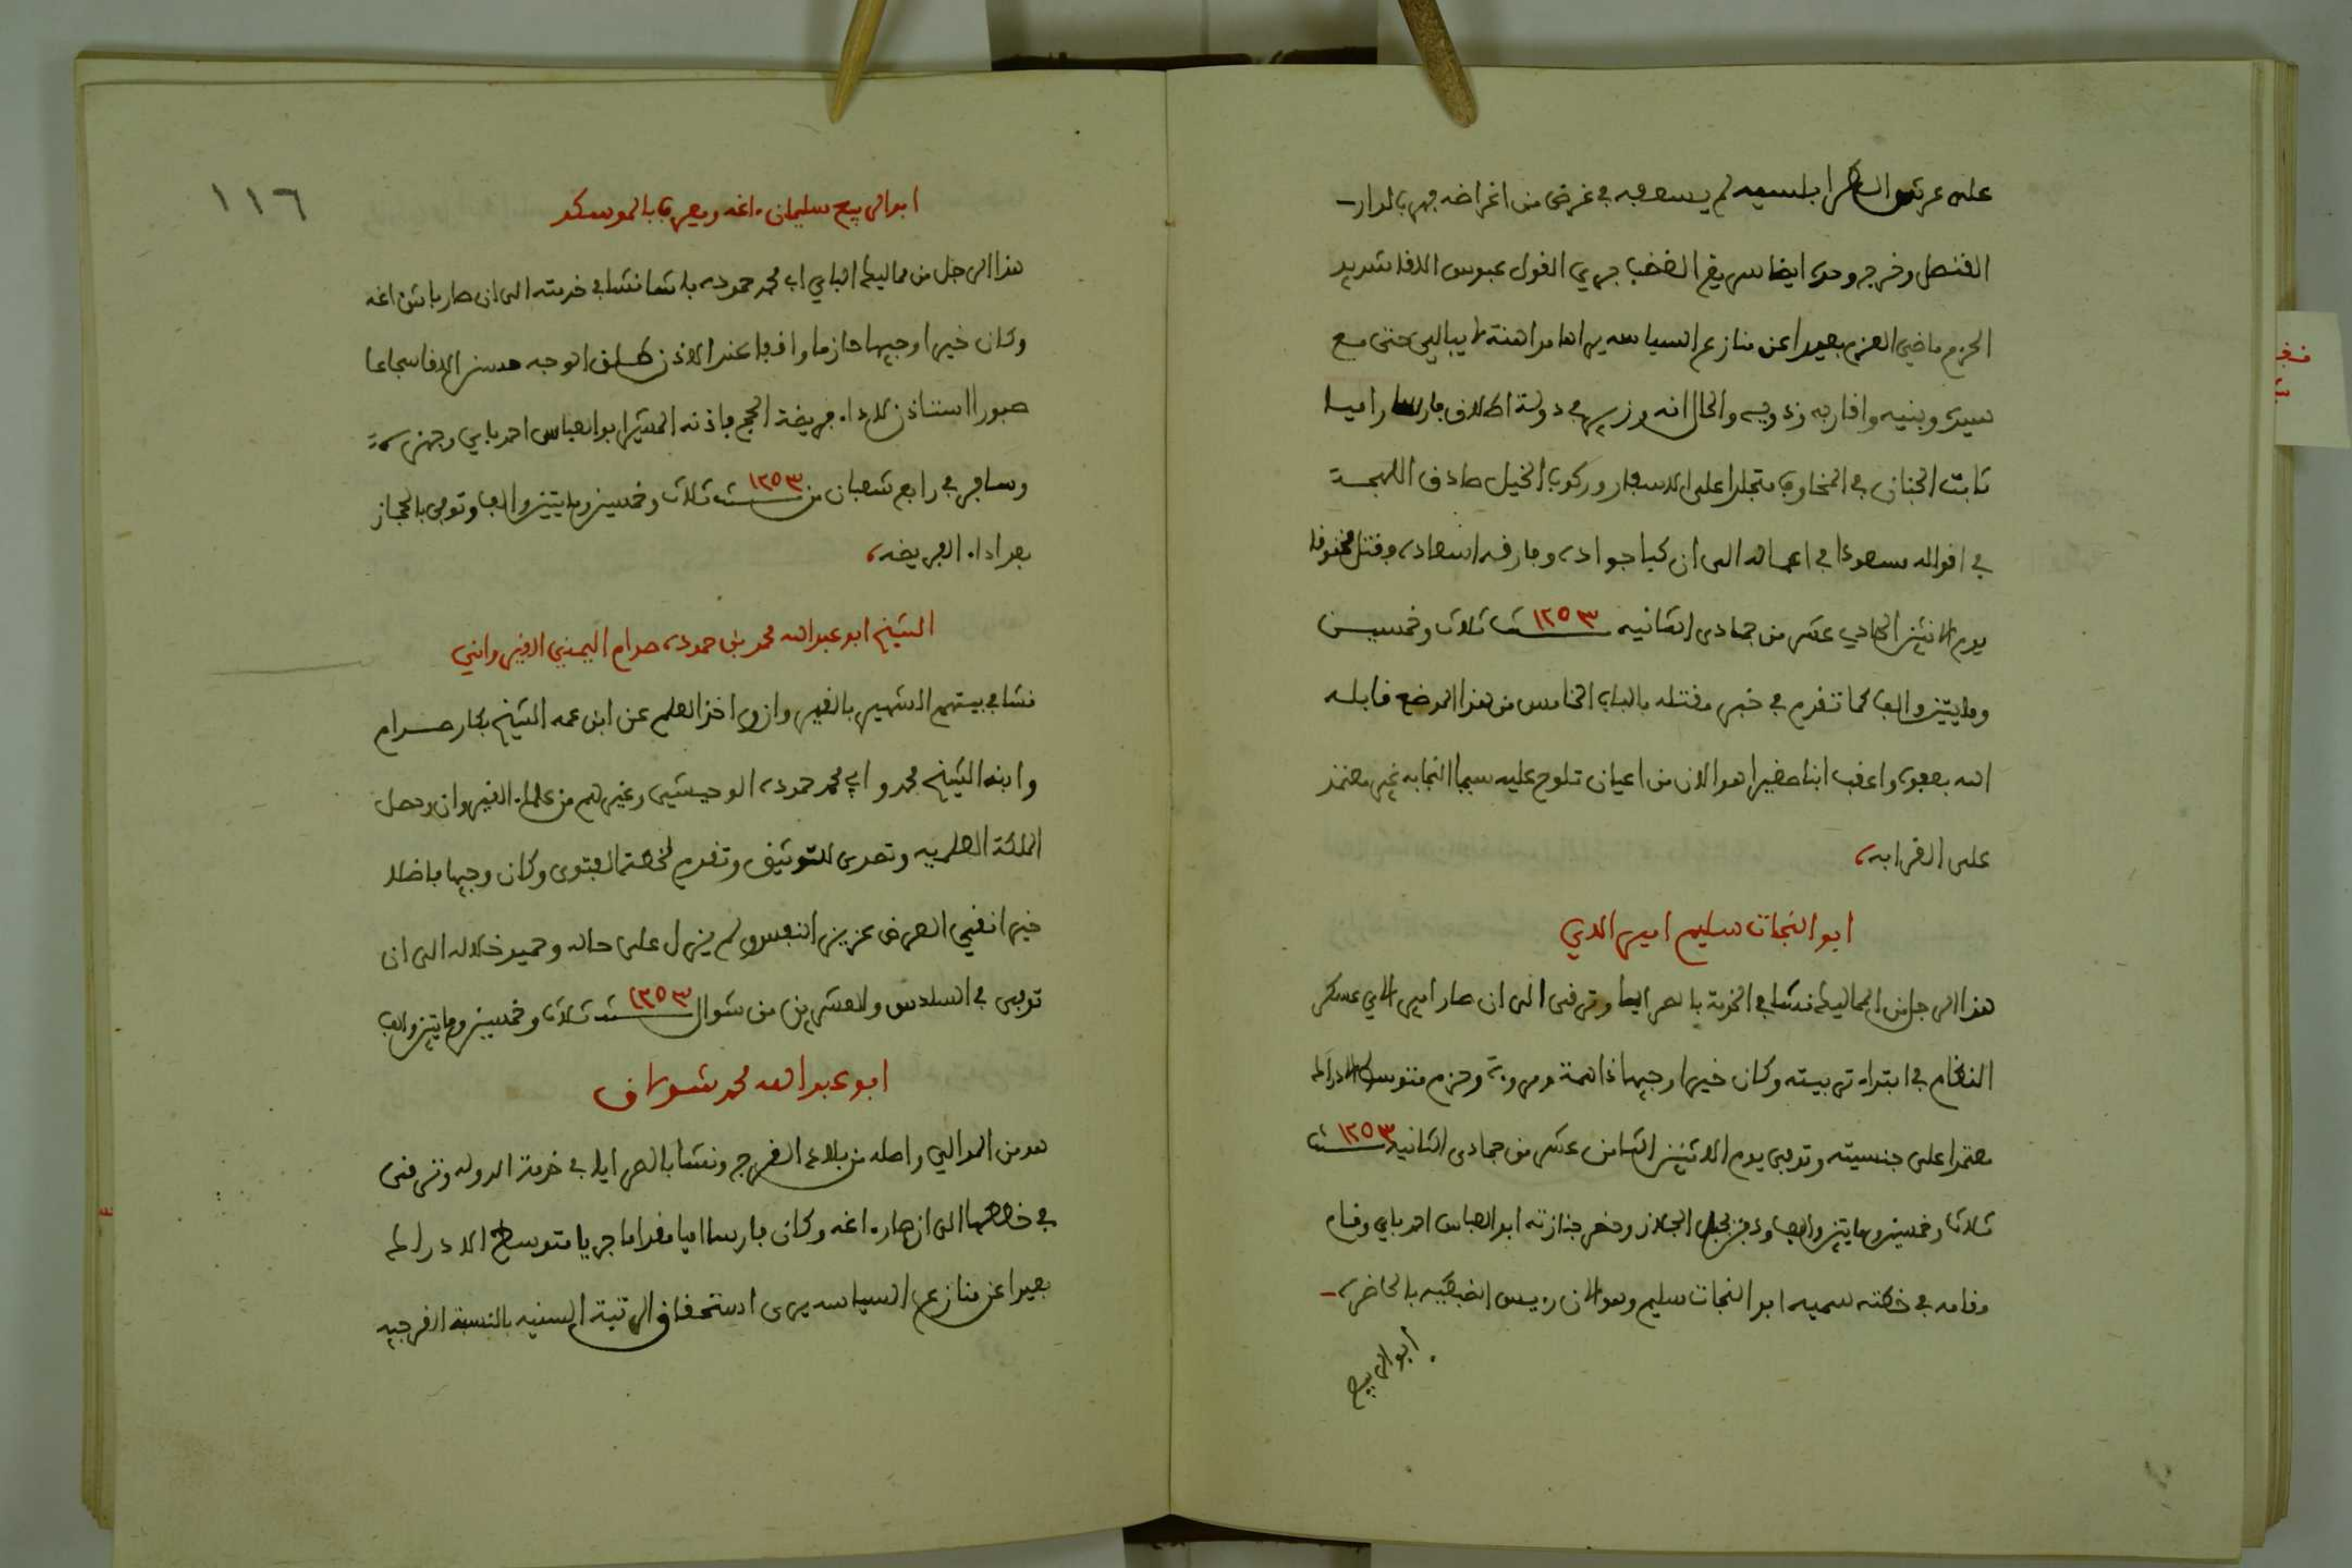 على عرش الـ لم يسعفه في غرض من اغراضه فهم بالدار
القنصل وخرج وحده ايضا سريع الغضب جري القول عبوس اللقا شديد
الحزم ماضي العزم بعيدا عن منازع السياسه يراها مداهنة لا يبالي حتى مع
سيده وبنيه واقاربه وذويه والحال انه وزير في دولة اطلاق فارسا راميا
ثابت الجنان في المخاوف متجلدا على الاسفار وركوب الخيل صادق اللهجة
في اقواله مسعودا في اعماله الى ان كبا جواده وفارقه اسعاده وقتل مخنوقا
يوم الاثنين الحادي عشر من جمادى الثانيه سنة ١٢٥٣ ثلاث وخمسين
ومايتين والف كما تقدم في خبر مقتله بالباب الخامس من هذا الموضع قابله
الله بعفوه واعقب ابنا صغيرا هو الان من اعيان تلوح عليه سيما النجابه غير معتمد
على القرابه
ابو النجات سليم امير الاي
هذا الرجل من المماليك نشا في الخدمة بالصرايا وترقى الى ان صار امير الاي عسكر
النظام في ابتداء تربيته وكان خيرا وجيها ذا همة ومروءة وحزم متوسط الادراك
معتمدا على جنسيته وتوفي يوم الاثنين الثامن عشر من جمادى الثانيه سنة ١٢٥٣
ثلاث وخمسين ومايتين والف ودفن بجبل الجلاز وحضر جنازته ابو العباس احمد باي وقام
مقامه في خطته سميه ابو النجات سليم وهو الان رييس الضبطيه بالحاضره
ابو الربيع
١١٦
ابو الربيع سليمان اغه ويعرف بالموسكو
هذا الرجل من مماليك الباي ابي محمد حموده باشا نشا في خدمته الى ان صار باش اغه
وكان خيرا وجيها حازما واقفا عند الاذن طلق الوجه حسن اللقا شجاعا
صبورا استاذن لاداء فريضة الحج فاذنه المشير ابو العباس احمد باي وجهزه
وسافر في رابع شعبان من سنة ١٢٥٣ ثلاث وخمسين ومايتين والف وتوفي بالحجاز
بعد اداء الفريضه
الشيخ ابو عبد الله محمد بن حموده صدام اليمني القيرواني
نشا في بيتهم الشهير بالقيروان واخذ العلم عن ابن عمه الشيخ بكار صدام
وابنه الشيخ محمد وابي محمد حموده الوحيشي وغيرهم من علماء القيروان وحصل
الملكة العلميه وتصدى للتوثيق وتقدم لخطة الفتوى وكان وجيها فاضلا
خيرا نقي العرض عزيز النفس ولم يزل على حاله وحميد خلاله الى ان
توفي في السادس والعشرين من شوال سنة ١٢٥٣ ثلاث وخمسين ومايتين والف
ابو عبد الله محمد شولاق
هو من الموالي واصله من بلاد القرج ونشا بالصرايا في خدمة الدوله وترقى
في خططها الى ان صار اغه وكان فارسا ابيا مقداما جريا متوسط الادراك
بعيدا عن منازع السياسه يرى استحقاق الرتبة السنيه بالنسبة القرجيه